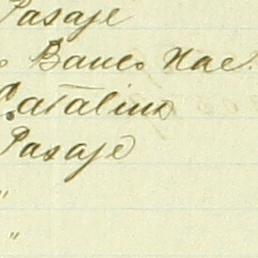 Pasaje
Banco Nac.
Catalina
Pasaje
"
"